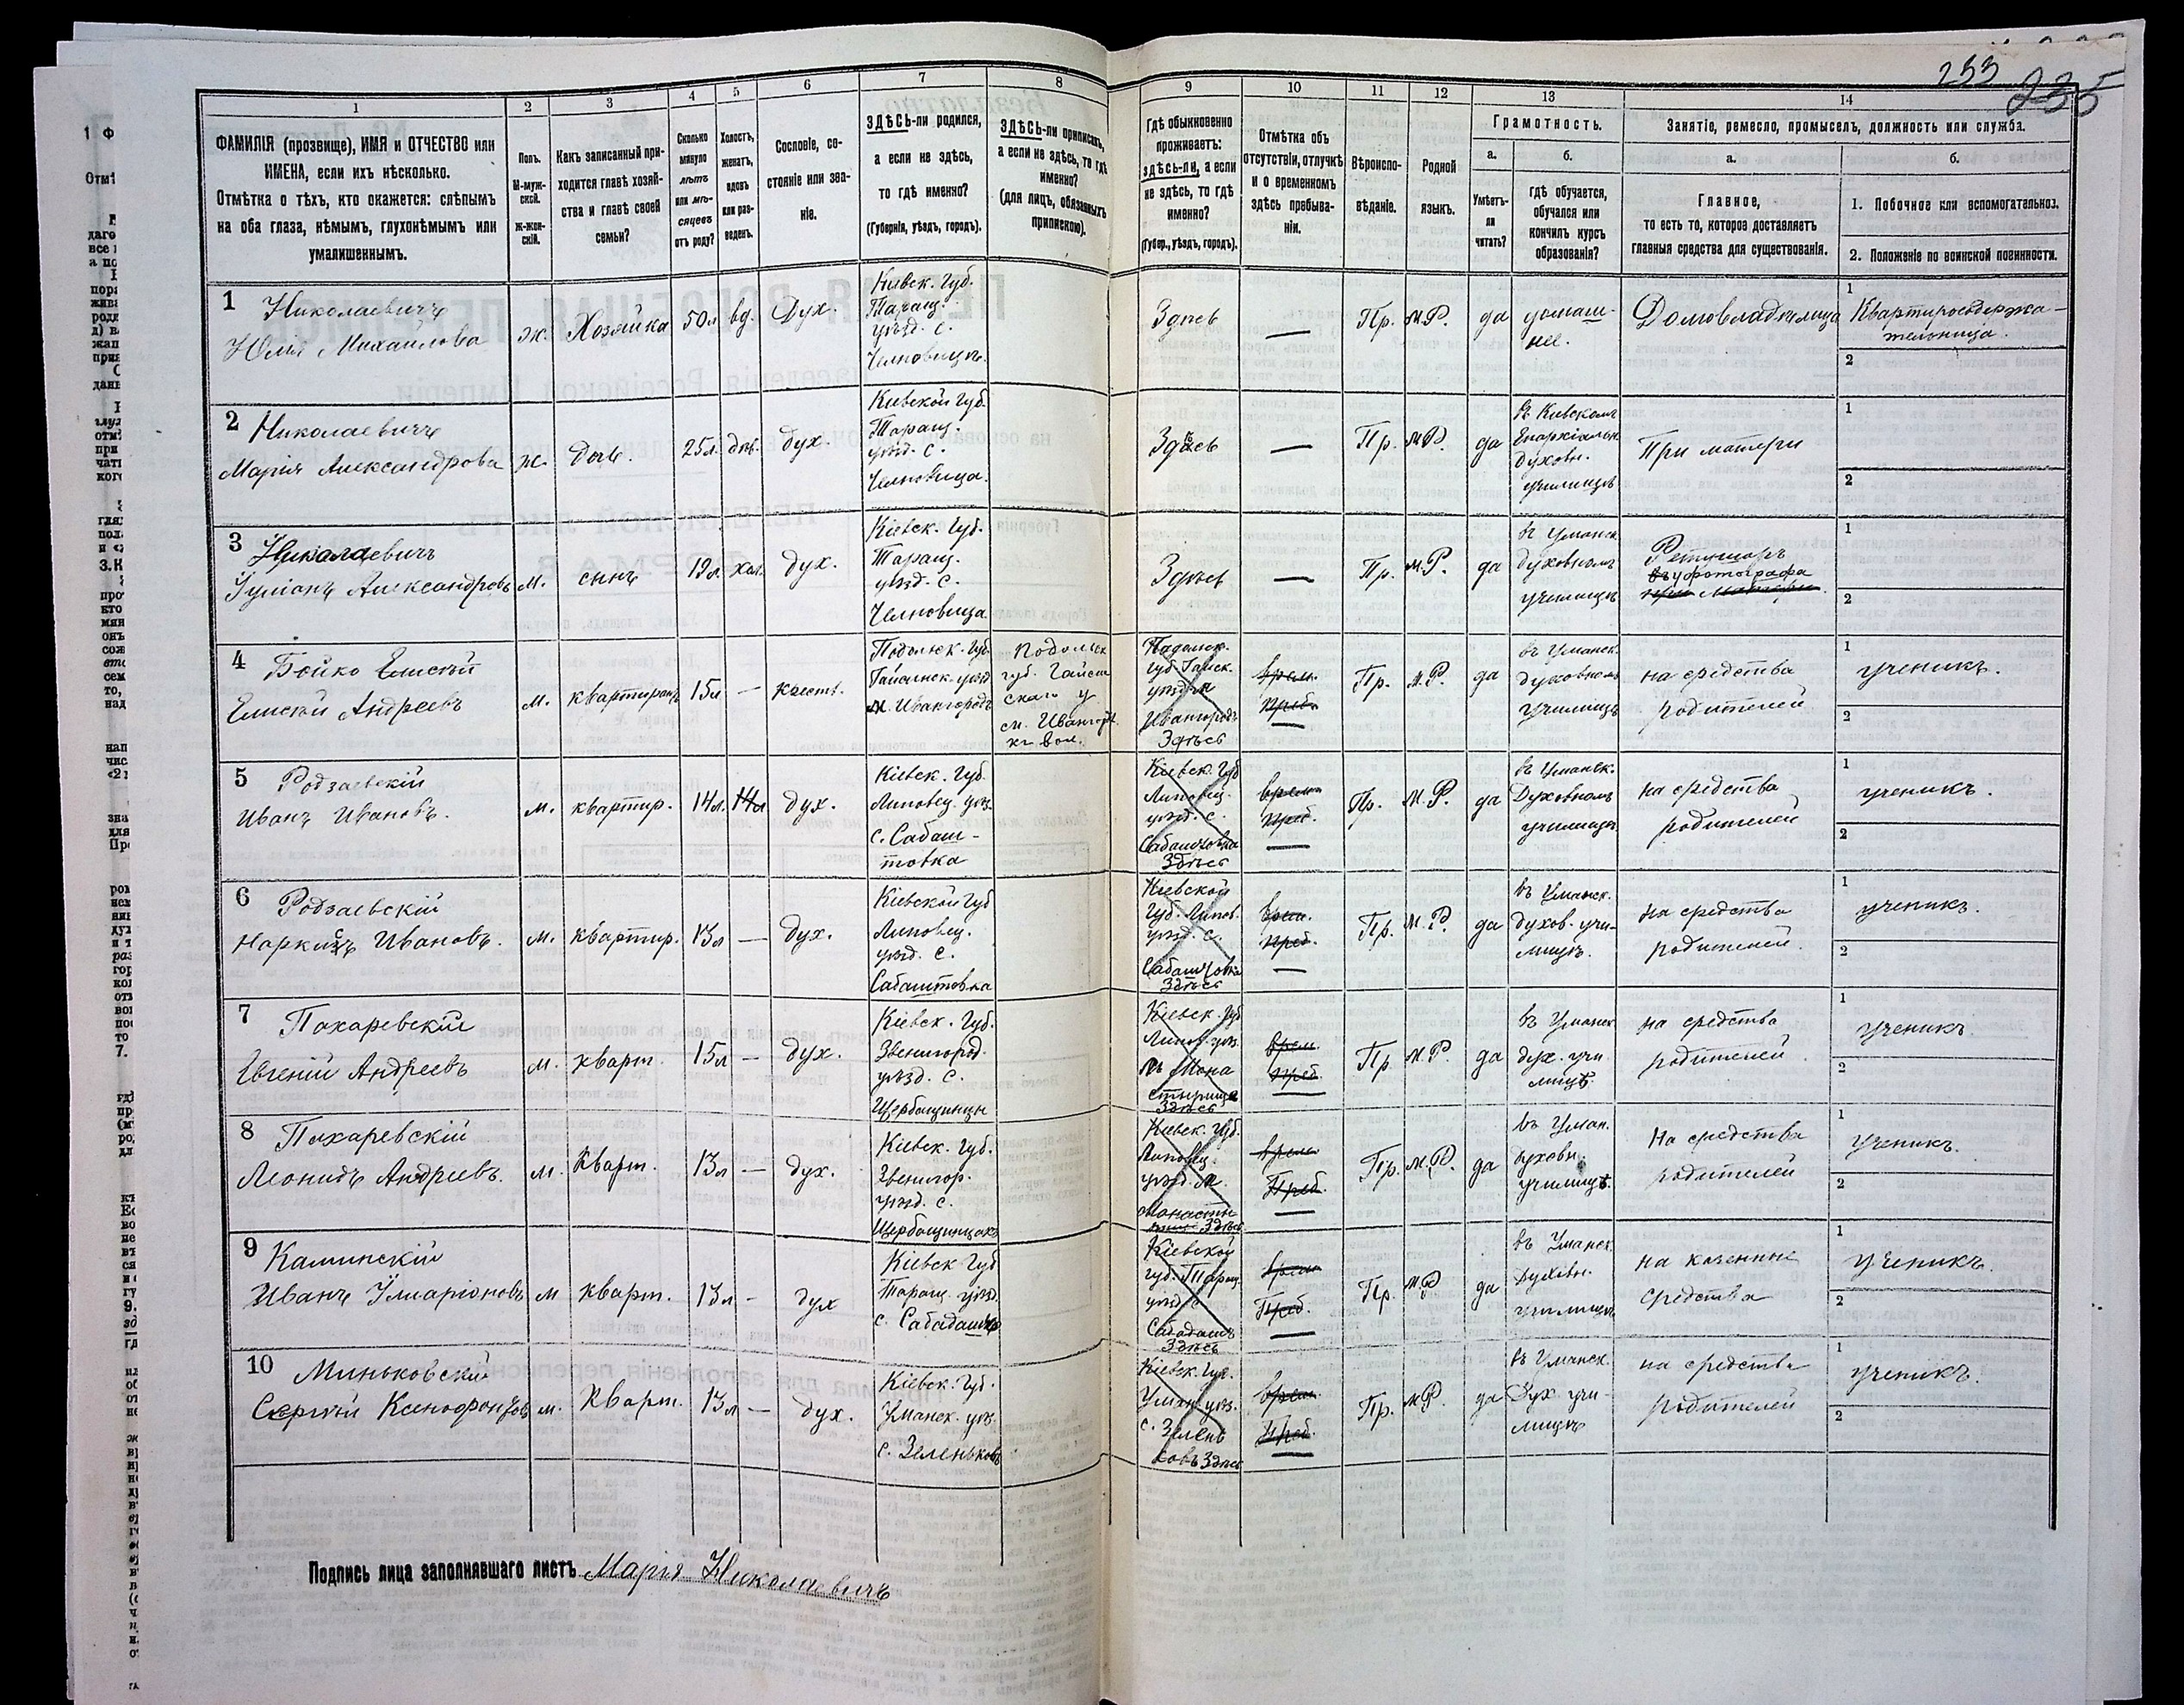 233
235
1
2
3
4
5
6
7
8
9
10
11
12
13
14
ФАМИЛІЯ (прозвище), ИМЯ и ОТЧЕСТВО или
ИМЕНА, если ихъ нѣсколько.
Отмѣтка о тѣхъ, кто окажется: слѣпымъ
на оба глаза, нѣмымъ, глухонѣмымъ или
умалишеннымъ.
Полъ.
М-муж-
ской.
Ж-жен-
скій.
Какъ записанный при-
ходится главѣ хозяй-
ства и главѣ своей
семьи?
Сколько
минуло
лѣтъ
или мѣ-
сяцевъ
отъ роду?
Холостъ,
женатъ,
вдовъ
или раз-
веденъ.
Сословіе, со-
стояніе или зва-
ніе.
ЗДѢСЬ-ли родился,
а если не здѣсь,
то гдѣ именно?
(Губернія, уѣздъ, городъ).
ЗДѢСЬ-ли приписанъ,
а если не здѣсь, то гдѣ
именно?
(для лицъ, обязанныхъ
припискою).
Гдѣ обыкновенно
проживаетъ:
здѣсь-ли, а если
не здѣсь, то гдѣ
именно?
(Губер., уѣздъ, городъ).
Отмѣтка объ
отсутствіи, отлучкѣ
и о временномъ
здѣсь пребыва-
ніи.
Вѣроиспо-
вѣданіе.
Родной
языкъ.
Грамотность.
а.
Умѣетъ-
ли
читать?
б.
гдѣ обучается,
обучался или
кончилъ курсъ
образованія?
Занятіе, ремесло, промыселъ, должность или служба.
а.
Главное,
то есть то, которое доставляетъ
главныя средства для существованія.
б.
1. Побочное или вспомогательное.
2. Положеніе по воинской повинности.
1
Николаевичъ
Юлія Михайлова
ж.
Хозяйка
50 л
вд.
Дух.
Киевск. Губ.
Таращ.
уѣзд. с.
Здѣсь
—
Пр.
м.Р.
да
Домовладѣлица
1
Квартиросодержа-
тельница.
2
2
Николаевичъ
Марія Александрова
ж.
дочь.
25 л.
дѣв.
дух.
Киевской Губ.
Таращ.
уѣзд. с.
Здѣсь
—
Пр.
м.Р.
да
въ Киевскомъ
Епархіальн.
духовн.
училищѣ
При матери
1
2
3
Николаевичъ
Іуліанъ Александровъ
м.
сынъ
19 л.
хол.
дух.
Кіевск. Губ.
Таращ.
уѣзд. с.
Здѣсь
—
Пр.
м.Р.
да
въ Уманск.
духовномъ
училищѣ
Ретушоръ
у фотографа
при матери.
1
2
4
Бойко
Андреевъ
м.
квартирантъ
15 л
—
крест.
Подольск. Губ
Гайсинск. уѣзд
м. Ивангородъ
Подольск
губ. Гайсин
скаго у
м. Ивангород.
Подольск.
Губ. Гайск.
уѣзд. м
Ивангородъ
Здѣсь
врем.
преб.
—
Пр.
м.Р.
да
въ Уманск.
духовномъ
училищѣ
на средства
родителей
1
ученикъ.
2
5
Родзаевскій
Иванъ Ивановъ.
м.
квартир.
14 л.
14 л
дух.
Кіевск. Губ.
Липовец. уѣз.
с. Сабаш-
товка
Кіевск. Губ
Липовец.
уѣзд. с.
Здѣсь
врем.
преб.
—
Пр.
м.Р.
да
въ Уманск.
Духовномъ
училищѣ
на средства
родителей
1
ученикъ.
2
6
Родзаевскій
Наркисъ Ивановъ.
м.
квартир.
13 л
—
дух.
Кіевской Губ
Липовец.
уѣзд. с.
Сабаштовка
Киевской
Губ. Липов.
уѣзд. с.
Здѣсь
врем.
преб.
—
Пр.
м.Р.
да
въ Уманск.
духов. учи-
лищѣ.
на средства
родителей.
1
ученикъ.
2
7
Пахаревскій
Евгеній Андреевъ
м.
кварт.
15 л
—
дух.
Кіевск. Губ.
Звенигород.
уѣзд. с.
Щербашинцы
Кіевск. Губ
Липов. уѣз.
м. Мона
стырище
Здѣсь
врем.
преб.
—
Пр
м.Р
да
въ Уманск.
дух. учи
лищѣ.
на средства
родителей.
1
ученикъ
2
8
Пахаревскій
Леонидъ Андреевъ.
м.
Кварт.
13 л
—
дух.
Кіевск. Губ.
Звенигор.
уѣзд. с.
Киевск. Губ.
Липовец.
уѣзд. м.
Монасты
Здѣсь
врем.
Преб.
—
Пр.
м.Р.
да
въ Уман.
духовн.
училищѣ.
На средства
родителей
1
ученикъ.
2
9
Каминскій
Иванъ Иларіоновъ
м
кварт.
13 л
-
дух
Кіевск Губ
Таращ. уѣзд.
Кіевской
губ. Таращ.
уѣзд. с
Здѣсь
врем
Преб.
—
Пр.
м.Р
да
въ Уманск.
духовн.
училищѣ
на казенные
средства
1
ученикъ.
2
10
Миньковскій
Сергѣй Ксенофонтовъ
м.
Кварт.
13 л
—
дух.
Кіевск. Губ.
Уманск. уѣз.
с. Зеленьковъ
Кіевск. Губ.
Уман. уѣз.
с. Зелень
ковъ Здѣсь
врем.
Преб.
—
Пр.
м.Р
да
въ Уманск.
Дух. учи-
лищѣ
на средства
родителей
1
ученикъ.
2
Подпись лица заполнявшаго листъ Марія Николаевичъ